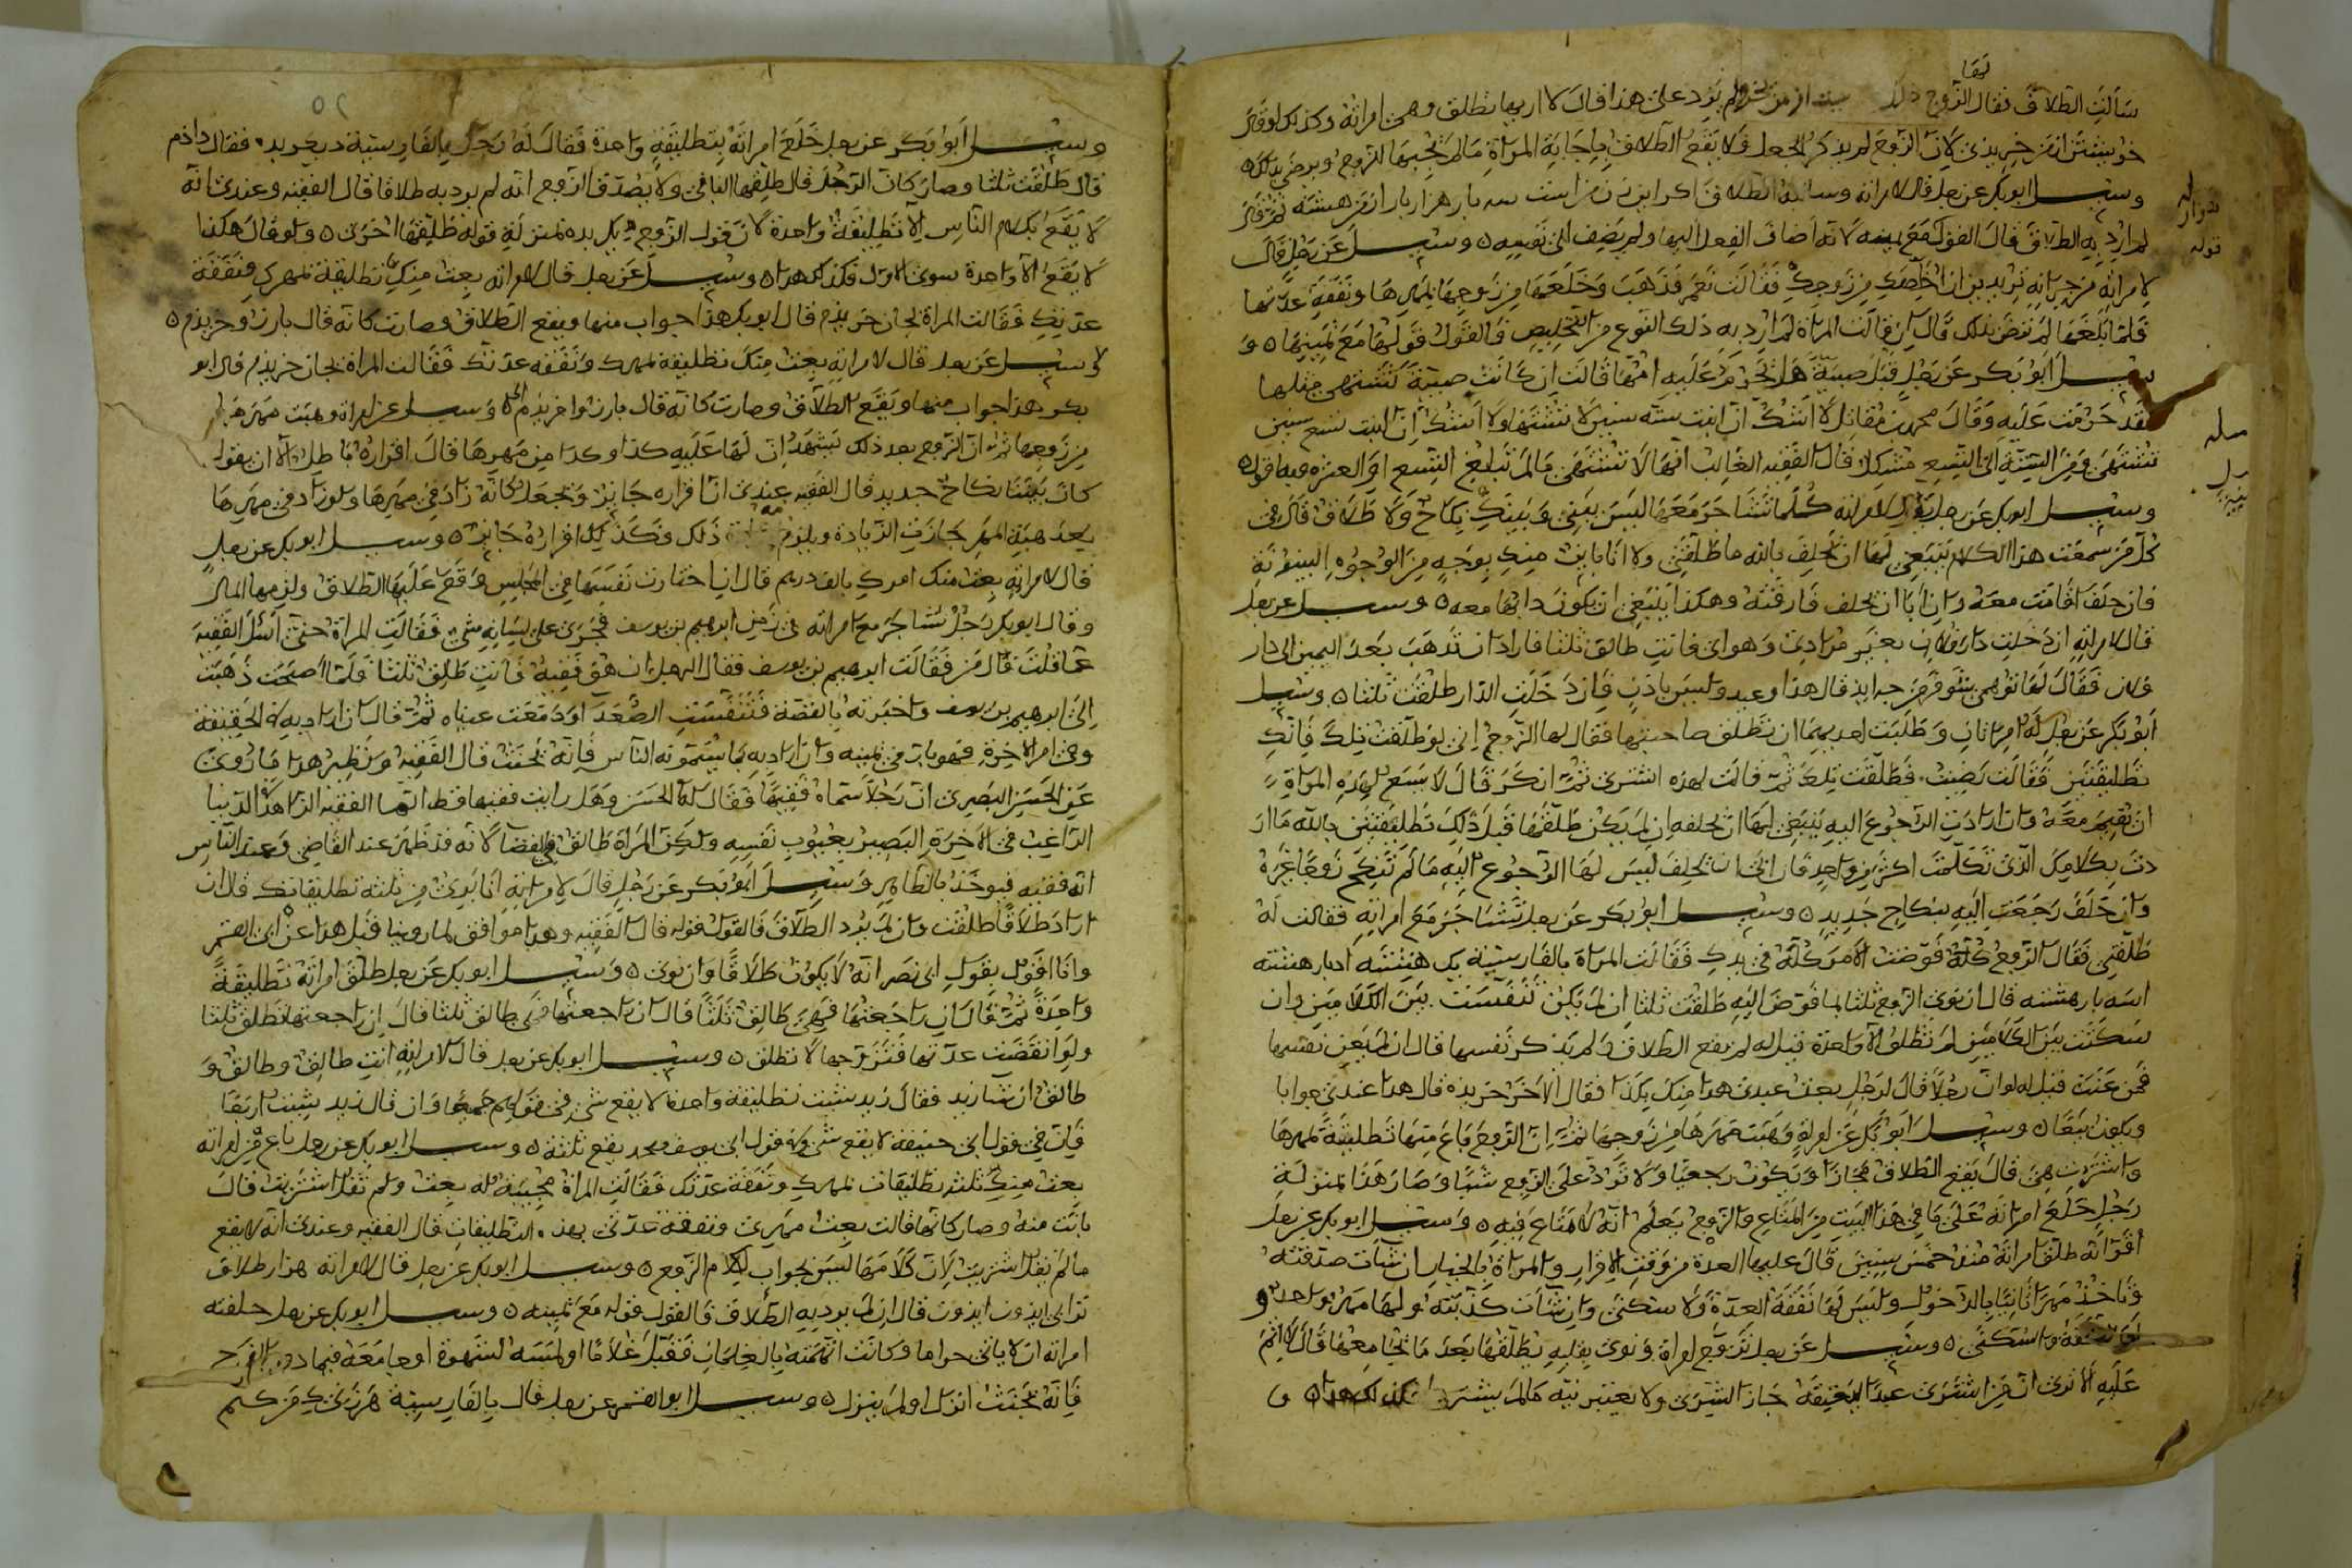 سألت الطلاق فقال الزوج ولم يزد على هذا قال لا اريها تطلق وهي امراته وكذلك لو قال
لان الزوج لم يذكر الجعل فلا يقع الطلاق باجابة المراة مالم يجبها الزوج ويرضى بذلك
وسئل ابو بكر عن رجل قال لامراته وسالته الطلاق اكر اين زن مراست سه بار هزار بار از من هشته ثم قال
لم ارد به الطلاق قال القول قوله مع يمينه لانه اضاف الفعل اليها ولم يضف الى نفسه وسئل عن رجل قال
لامراة من جيرانه تريدين ان اخلصك من زوجك فقالت نعم فذهب وخلعها من زوجها بمهرها ونفقة عدتها
فلما بلغها لم ترض بذلك قال ان قالت المراة لم ارد به ذلك النوع من التخليص فالقول قولها مع يمينها و
سئل ابو بكر عن رجل قبل صبية هل تحرم عليه امها قال ان كانت صبية تشتهى مثلها
فقد حرمت عليه وقال محمد بن مقاتل لا اشك ان ابنت ستة سنين لا تشتهى ولا اشك ان ابنت تسع سنين
تشتهى ومن الستة الى التسع مشكل قال الفقيه الغالب انها لا تشتهى مالم تبلغ التسع او العشر
وسئل ابو بكر عن رجل يقول لامراته كلما تشاجر معها ليس بيني وبينك نكاح ولا طلاق قال في
كل مرة سمعت هذا الكلام ينبغي لها ان تحلف بالله ما طلقتني ولا انا باين منك بوجه من الوجوه البينونة
فان حلف اقامت معه وان ابا ان يحلف فارقته وهكذا ينبغي ان يكون دابها معه وسئل عن رجل
قال لامراته ان دخلت دار فلان بغير مرادي وهواي فانت طالق ثلثا فاراد ان تذهب بعد اليمين الى دار
فلان فقال لها قال هذا وعيد وليس باذن فان دخلت الدار طلقت ثلثا وسئل
ابو بكر عن رجل له امراتان وطلبت احديهما ان تطلق صاحبتها فقال لها الزوج اني لو طلقت تلك فانك
تطليقتين فقالت رضيت فطلقت تلك ثم قالت لهذه اشترى ثم انكر قال لا يسع لهذه المراة
ان تقيم معه وان ارادت الرجوع اليه ينبغي لها ان تحلفه ان لم يكن طلقها قبل ذلك تطليقتين بالله ما ار
دت بكلامك الذي تكلمت اكثر من واحد فان ابى ان يحلف ليس لها الرجوع اليه مالم تنكح زوجا غيره
وان حلف رجعت اليه بنكاح جديد وسئل ابو بكر عن رجل تشاجر مع امراته فقالت له
طلقني فقال الزوج كله فوضت الامر كله في يدك فقالت المراة بالفارسية يك هشته ادبار هشته
اسه بار هشته قال ان نوى الزوج ثلثا بما فوض اليه طلقت ثلثا ان لم يكن تنفست بين الكلامين وان
سكتت بين الكلامين لم تطلق الا واحدة قيل له لم يقع الطلاق ولم يذكر نفسها قال ان لم يعن نفسها
فمن عنت قيل له لو ان رجلا قال لرجل بعت عبدي هذا منك بكذا فقال الاخر خريده قال هذا عندي جوابا
ويكون بيعا وسئل ابو بكر عن امراة وهبت مهرها من زوجها ثم ان الزوج باع منها تطليقة بمهرها
واشترت هي قال يقع الطلاق مجازا ويكون رجعيا ولا ترد على الزوج شيئا وصار هذا بمنزلة
رجل خلع امراته على ما في هذا البيت من المتاع والزوج يعلم انه لا متاع فيه وسئل ابو بكر عن رجل
اقر انه طلق امراته منذ خمس سنين قال عليها العدة من وقت الاقرار والمراة بالخيار ان شآت صدقته
وتاخذ مهرا ثانيا بالدخول وليس لها نفقة العدة ولا سكنى وان شآت كذبته ولها مهر واحد و
لها نفقة واسكنى وسئل عن رجل تزوج امراة ونوى بقلبه يطلقها بعد ما يجامعها قال لا اثم
عليه الا ترى ان من اشترى عبدا ليعتقه جاز الشرى ولا يعتبر نيته مالم يشترط كذلك هذا و
وسئل ابو بكر عن رجل خلع امراته بتطليقة واحدة فقال له رجل بالفارسية ديكر بده فقال دادم
قال طلقت ثلثا وصار كان الرجل قال طلقها الباقي ولا يصدق الزوج انه لم يرد به طلاقا قال الفقيه وعندي انه
لا يقع بكلام الناس الا تطليقة واحدة لان قول الزوج ديكر بده بمنزلة قوله طلقها اخرى ولو قال هكذا
لا يقع الا واحدة سوى الاول فكذلك هذا وسئل عن رجل قال لامراته بعت منك تطليقة بمهرك ونفقة
عدتك فقالت المراة بجان خريدم قال ابو بكر هذا جواب منها ويقع الطلاق وصارت كانه قال بارزو خريدم
وسئل عن رجل قال لامراته بعت منك تطليقة بمهرك ونفقة عدتك فقالت المراة بجان خريدم قال ابو
بكر هذا جواب منها ويقع الطلاق وصارت كانه قال بارزوا خريدم وسئل عن امراة وهبت مهرها
من زوجها ثم ان الزوج بعد ذلك يشهد ان لها عليه كذا وكذا من مهرها قال اقراره باطل الا ان يقول
كان بيننا نكاح جديد قال الفقيه عندي ان اقراره جايز ونجعل كانه زاد في مهرها ولو زاد في مهرها
بعد هبة المهر جازت الزيادة ويلزمه ذلك فكذلك اقراره جايز وسئل ابو بكر عن رجل
قال لامراته بعت منك امرك بالف درهم قال ان اختارت نفسها في المجلس وقع عليها الطلاق ولزمها المال
وقال ابو بكر رجل تشاجر مع امراته في زمن ابرهيم بن يوسف فجرى على لسانه شي فقالت المراة حتى اسأل الفقيه
عما قلت قال من فقالت ابرهيم بن يوسف فقال الرجل ان هو فقيه فانت طالق ثلثا فلما اصبحت ذهبت
الى ابرهيم بن يوسف واخبرته بالقصة فتنفست الصعدا ودمعت عيناه ثم قال ان اراد به الحقيقة
وهي امر الاخرة فهو بار في يمينه وان اراد به بما يسمونه الناس فانه يحنث قال الفقيه ونظير هذا ما روى
عن الحسن البصري ان رجلا سماه فقيها فقال له الحسن وهل رايت فقيها قط انما الفقيه الزاهد في الدنيا
الراغب في الاخرة البصير بعيوب نفسه ولكن المراة طالق في القضا لانه قد ظهر عند القاضي وعند الناس
انه فقيه فيوخذ بالظاهر وسئل ابو بكر عن رجل قال لامراته انا بري من ثلثة تطليقاتك قال ان
اراد طلاقا طلقت وان لم يرد الطلاق فالقول قوله قال الفقيه وهذا موافق لما روينا قبل هذا عن ابي القسم
وانا اقول بقول ابي نصر انه لا يكون طلاقا وان نوى وسئل ابو بكر عن رجل طلق امراته تطليقة
واحدة ثم قال ان راجعتها فهي طالق ثلثا قال ان راجعتها فهي طالق ثلثا قال ان راجعتها تطلق ثلثا
ولو انقضت عدتها فتزوجها لا تطلق وسئل ابو بكر عن رجل قال لامراته انت طالق وطالق و
طالق ان شا زيد فقال زيد شيت تطليقة واحدة لا يقع شي في قولهم جميعا وان قال زيد شيت اربعا
فان في قول ابي حنيفة لا يقع شي وفي قول ابي يوسف ومحمد يقع ثلثة وسئل ابو بكر عن رجل باع من امراته
بعت منك ثلث تطليقات بمهرك ونفقة عدتك فقالت المراة مجيبة له بعت ولم تقل اشتريت قال
بانت منه وصار كانها قالت بعت مهري ونفقة عدتي بهذه التطليقات قال الفقيه وعندي انه لا يقع
مالم تقل اشتريت لان كلامها ليس بجواب لكلام الزوج وسئل ابو بكر عن رجل قال لامراته هزار طلاق
قال ان لم يرد به الطلاق فالقول قوله مع يمينه وسئل ابو بكر عن رجل حلفته
امراته ان لا ياتي حراما وكانت اتهمته بالغلمان فقبل غلاما او لمسه لشهوة او جامعه فيما دون الفرج
فانه يحنث انزل او لم ينزل وسئل ابو القسم عن رجل قال بالفارسية هر زني كه من كنم